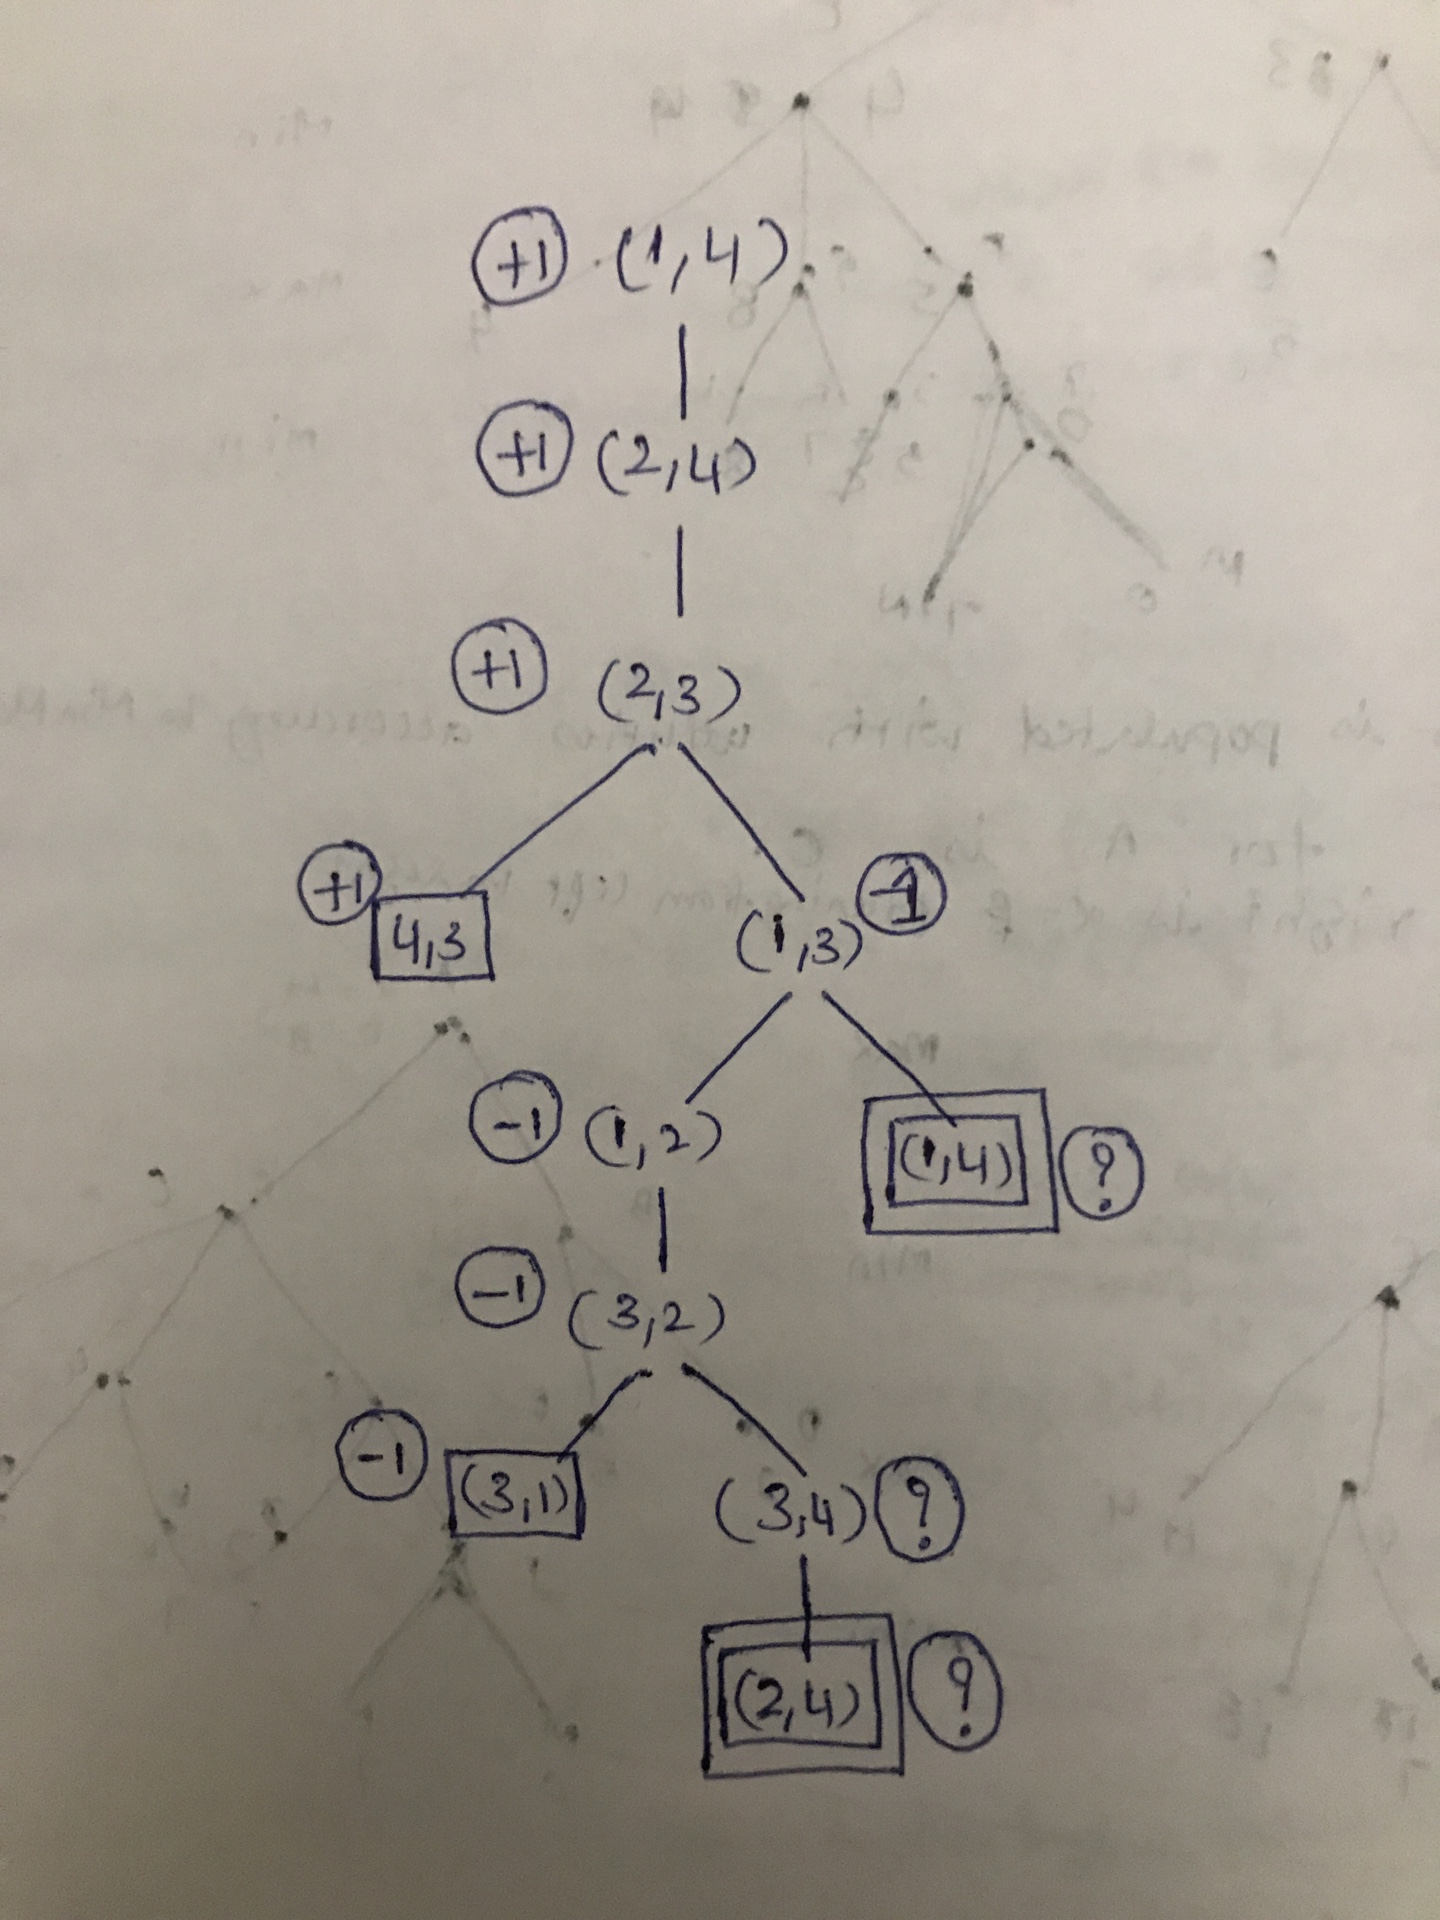 +1 (1,4)
+1 (2,4)
+1 (2,3)
+1 4,3 (1,3) -1
-1 (1,2) (1,4) ?
-1 (3,2)
-1 (3,1) (3,4) ?
(2,4) ?